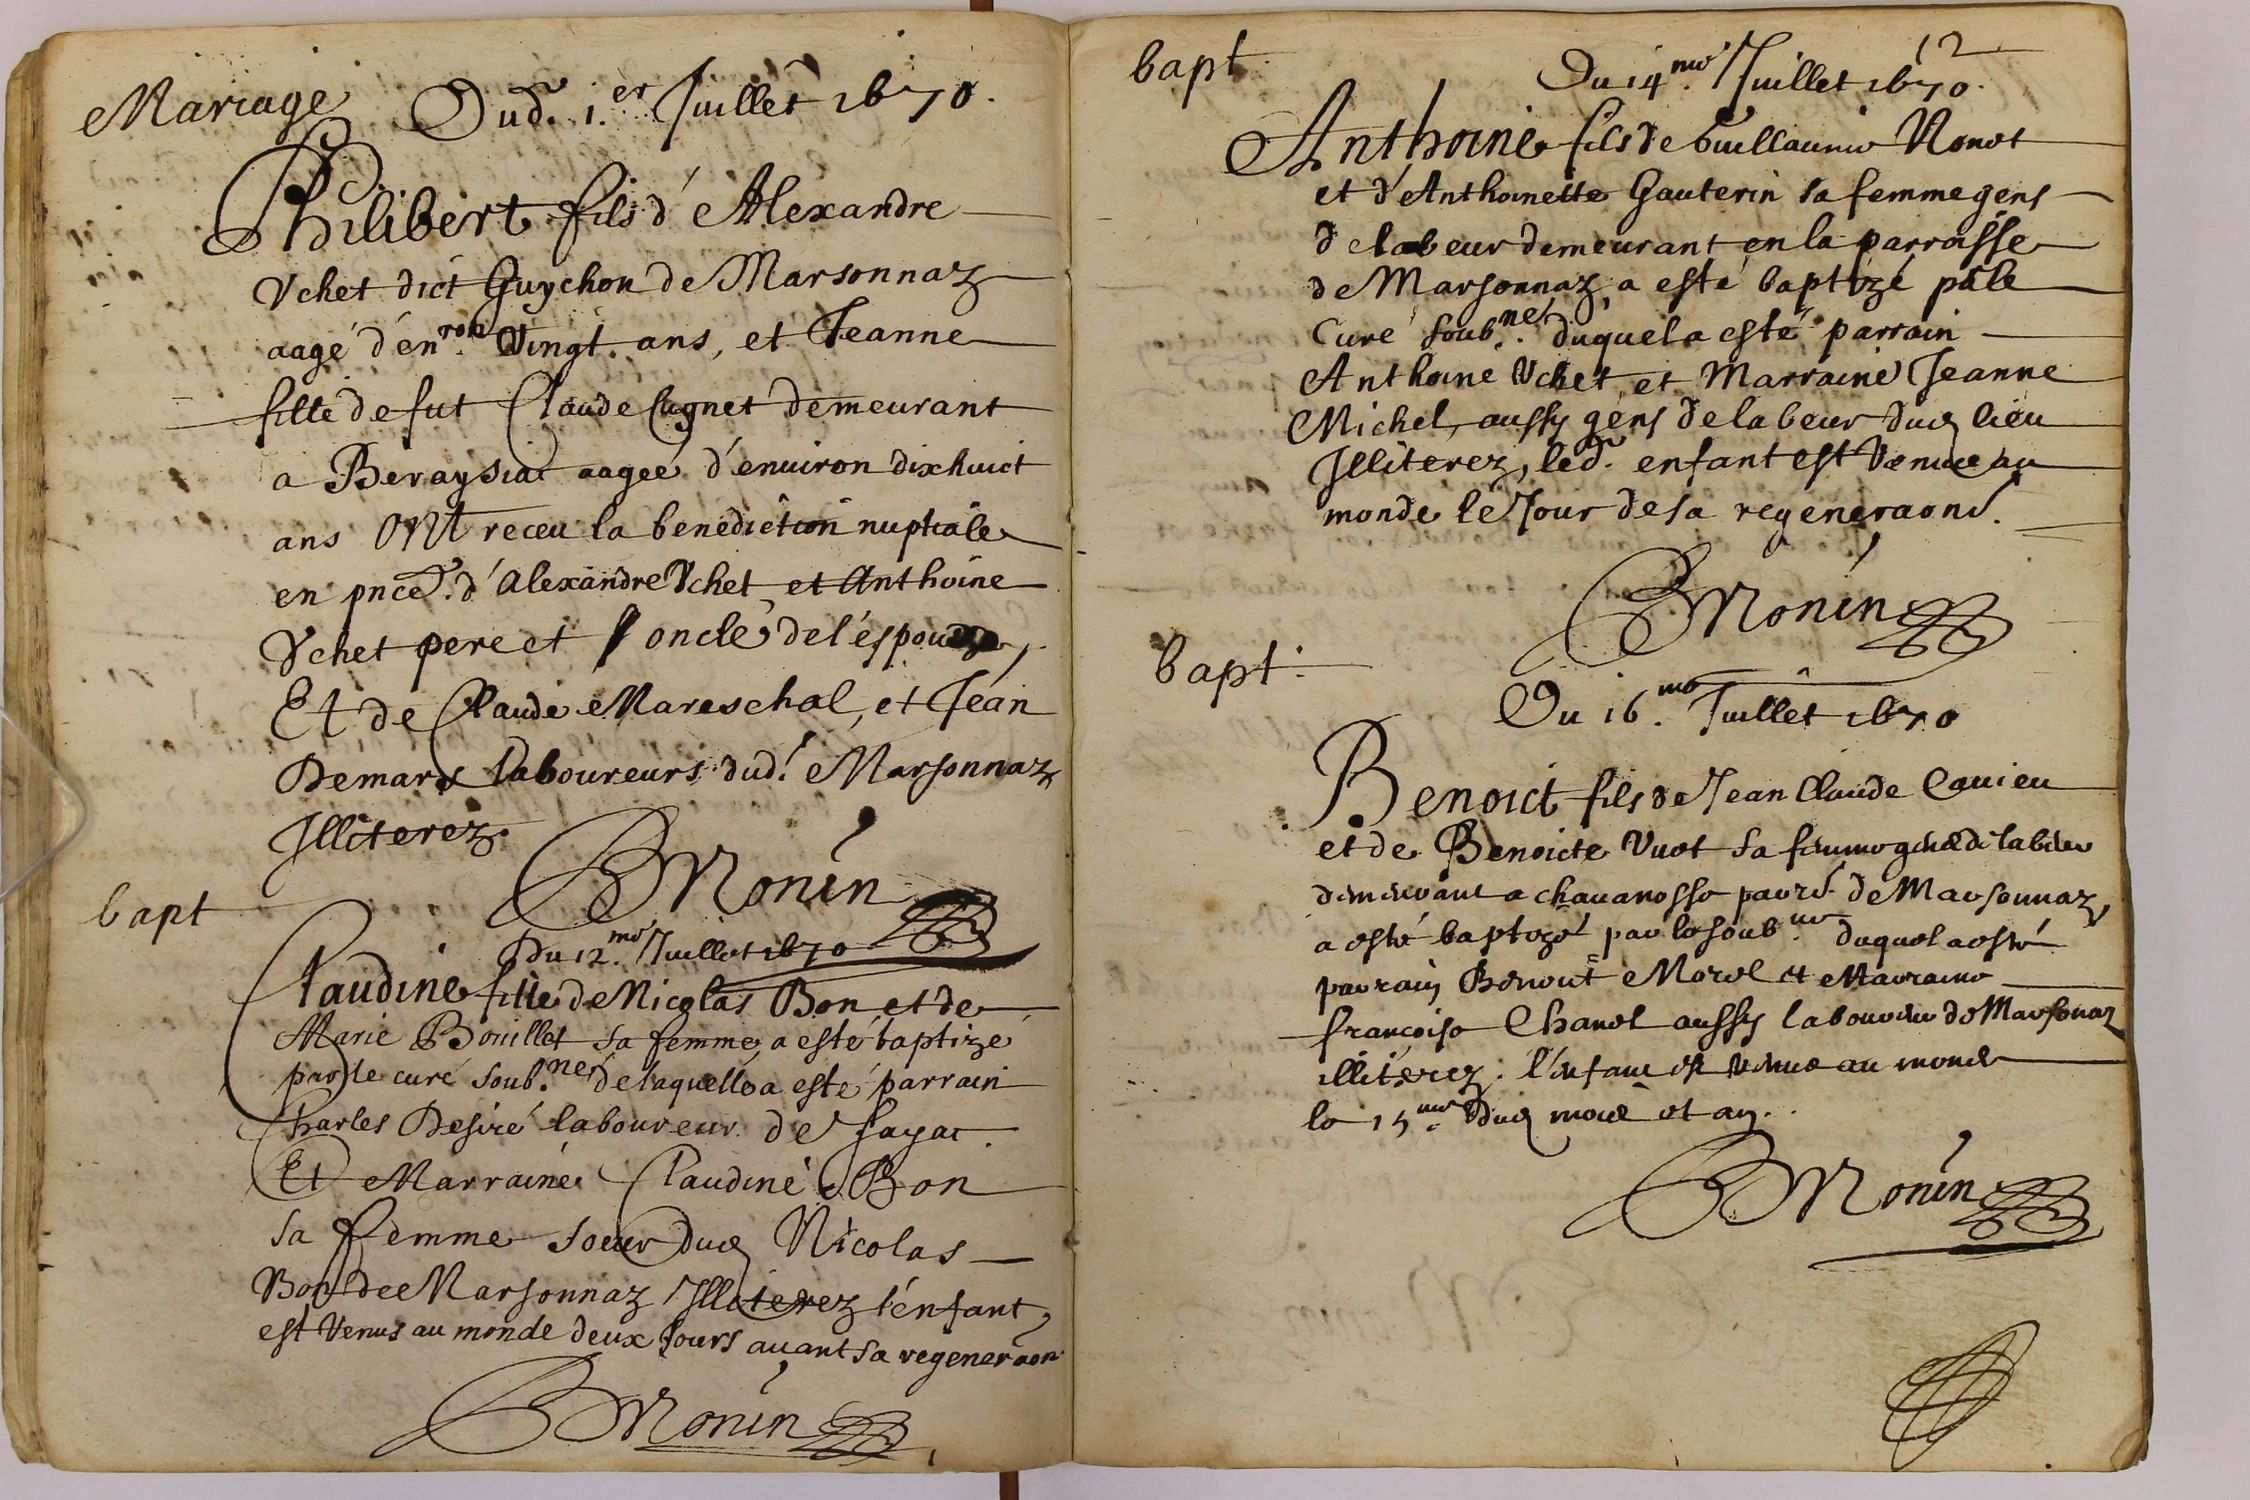 Mariage
Dud. 1.er Juillet 1670.
Philibert fils d'Alexandre
Vchet dict Guychon de Marsonnaz
aagé d'en.ron Vingt ans, et Jeanne
fille de fut Claude Cugnet demeurant
a Beraysiat aagée d'enuiron dixhuict
ans Ont receu la benediction nuptiale
en pnce. d'Alexandre Vchet et Anthoine
Vchet pere et oncle de l'
Et de Claude Mareschal, et Jean
Demarx Laboureurs dud. Marsonnaz
Illiterez.
BMonin
bapt
Du 12.me Juillet 1670
Claudine fille de Nicolas Bon et de
Marie Bouillet sa femme, a esté baptizé
par le curé soub.né de laquelle a esté parrain
Charles Desiré laboureur de Jayat.
Et Marraine Claudine Bon
sa femme soeur dud Nicolas
Bon de Marsonnaz Illiterez l'enfant
est Venus au monde deux Jours auant sa regeneraon
BMonin
12
bapt.
Du 14.me Juillet 1670.
Anthoine fils de Guillaume Nonot
et d'Anthoinette Gauterin sa femme gens
de labeur demeurant en la parroisse
de Marsonnaz, a esté baptizé pale
Curé soub.né duquel a esté parrain
Anthoine Vchet et Marraine Jeanne
Michel, aussy gens de labeur dud lieu
Illiterez, led. enfant est Venue au
monde le Jour de sa regeneraon.
BMonin
bapt.
Du 16.me Juillet 1670
Benoict fils de Jean Claude Cauieu
et de Benoicte Vuot sa femme gens de labeur
demeurant a chauanosse parr. de Marsonnaz,
a esté baptizé par le soub.né duquel a esté
parrain Benoit Morel et Marraine
francoise Chanel aussy laboureur de Marsonaz
illiterez. l'enfant est venue au monde
le 15.me dud mois et an.
BMonin